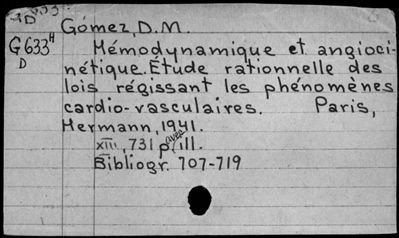 Gómez, D.M.
G633ᴴ
D
Hémodynamique et angioci-
nétique. Étude rationnelle des
lois régissant les phénomènes
cardio-vasculaires. Paris,
Hermann, 1941.
XIII, 731 p. avec ill.
Bibliogr. 707-719